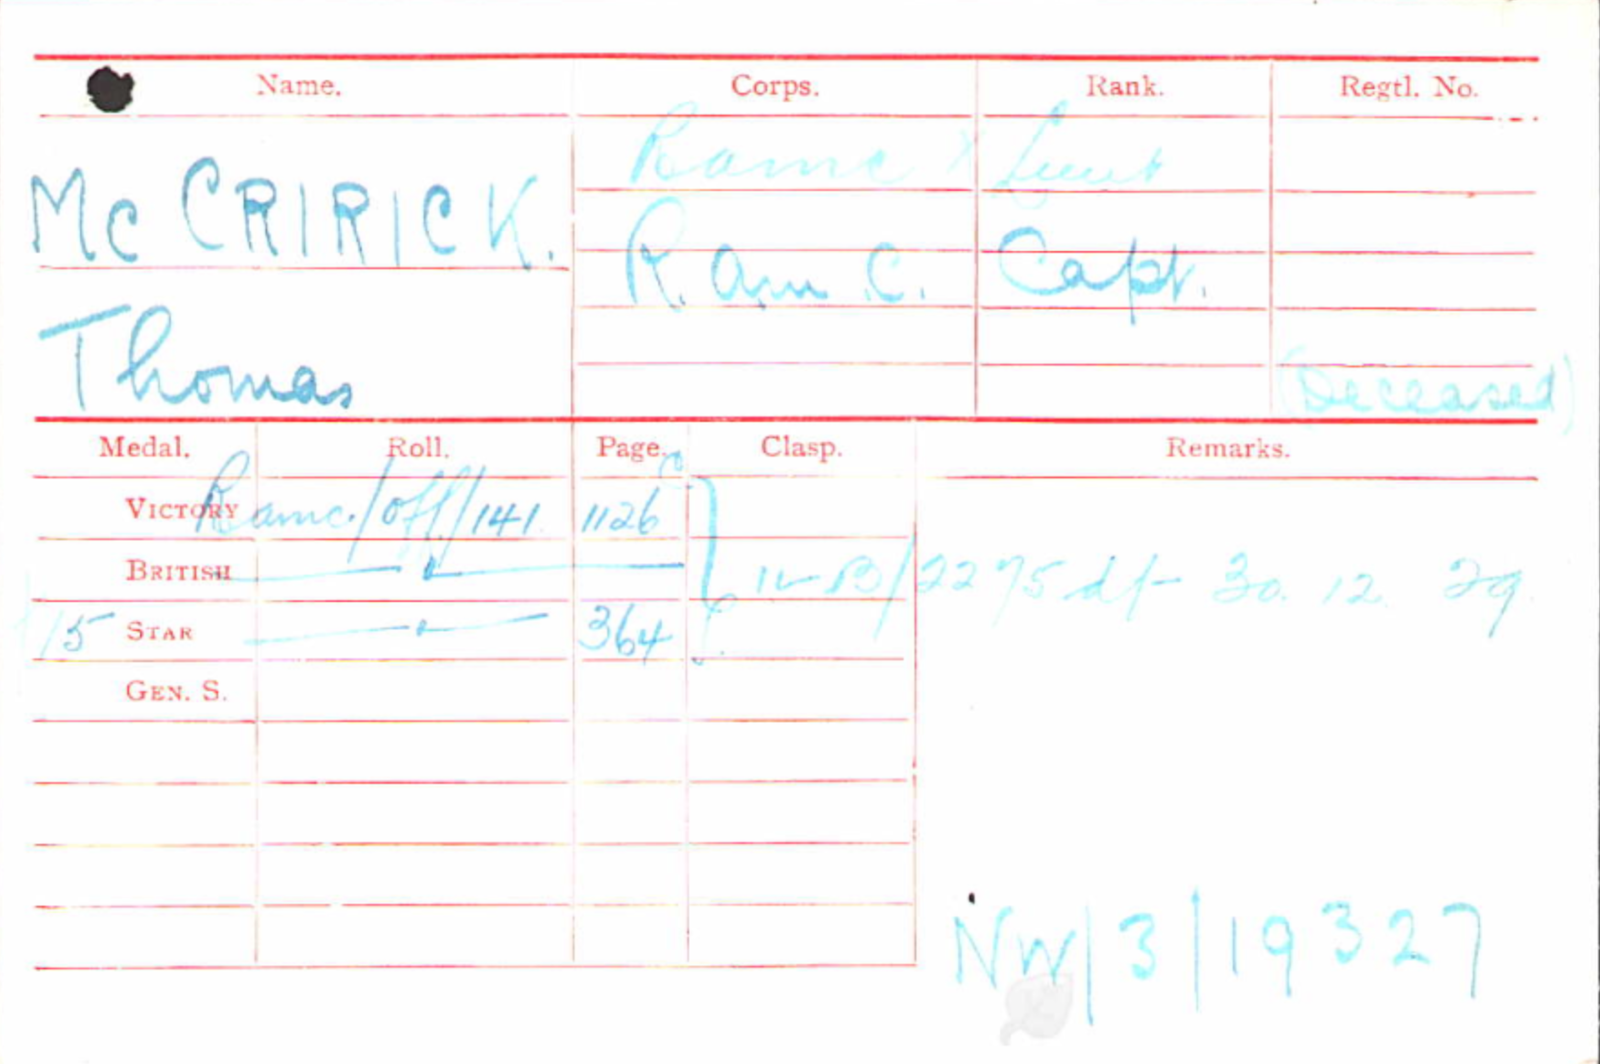 Name. Corps. Rank. Regtl. No.
Ramc x Lieut
Mc CRIRICK.
R. Am C. Capt.
Thomas
(Deceased)
Medal. Roll. Page. Clasp. Remarks.
VICTORY Ramc./Off/141 1126 C
BRITISH
IV B/2275 df 30. 12. 29.
/15 STAR 364
GEN. S.
NW/3/19327